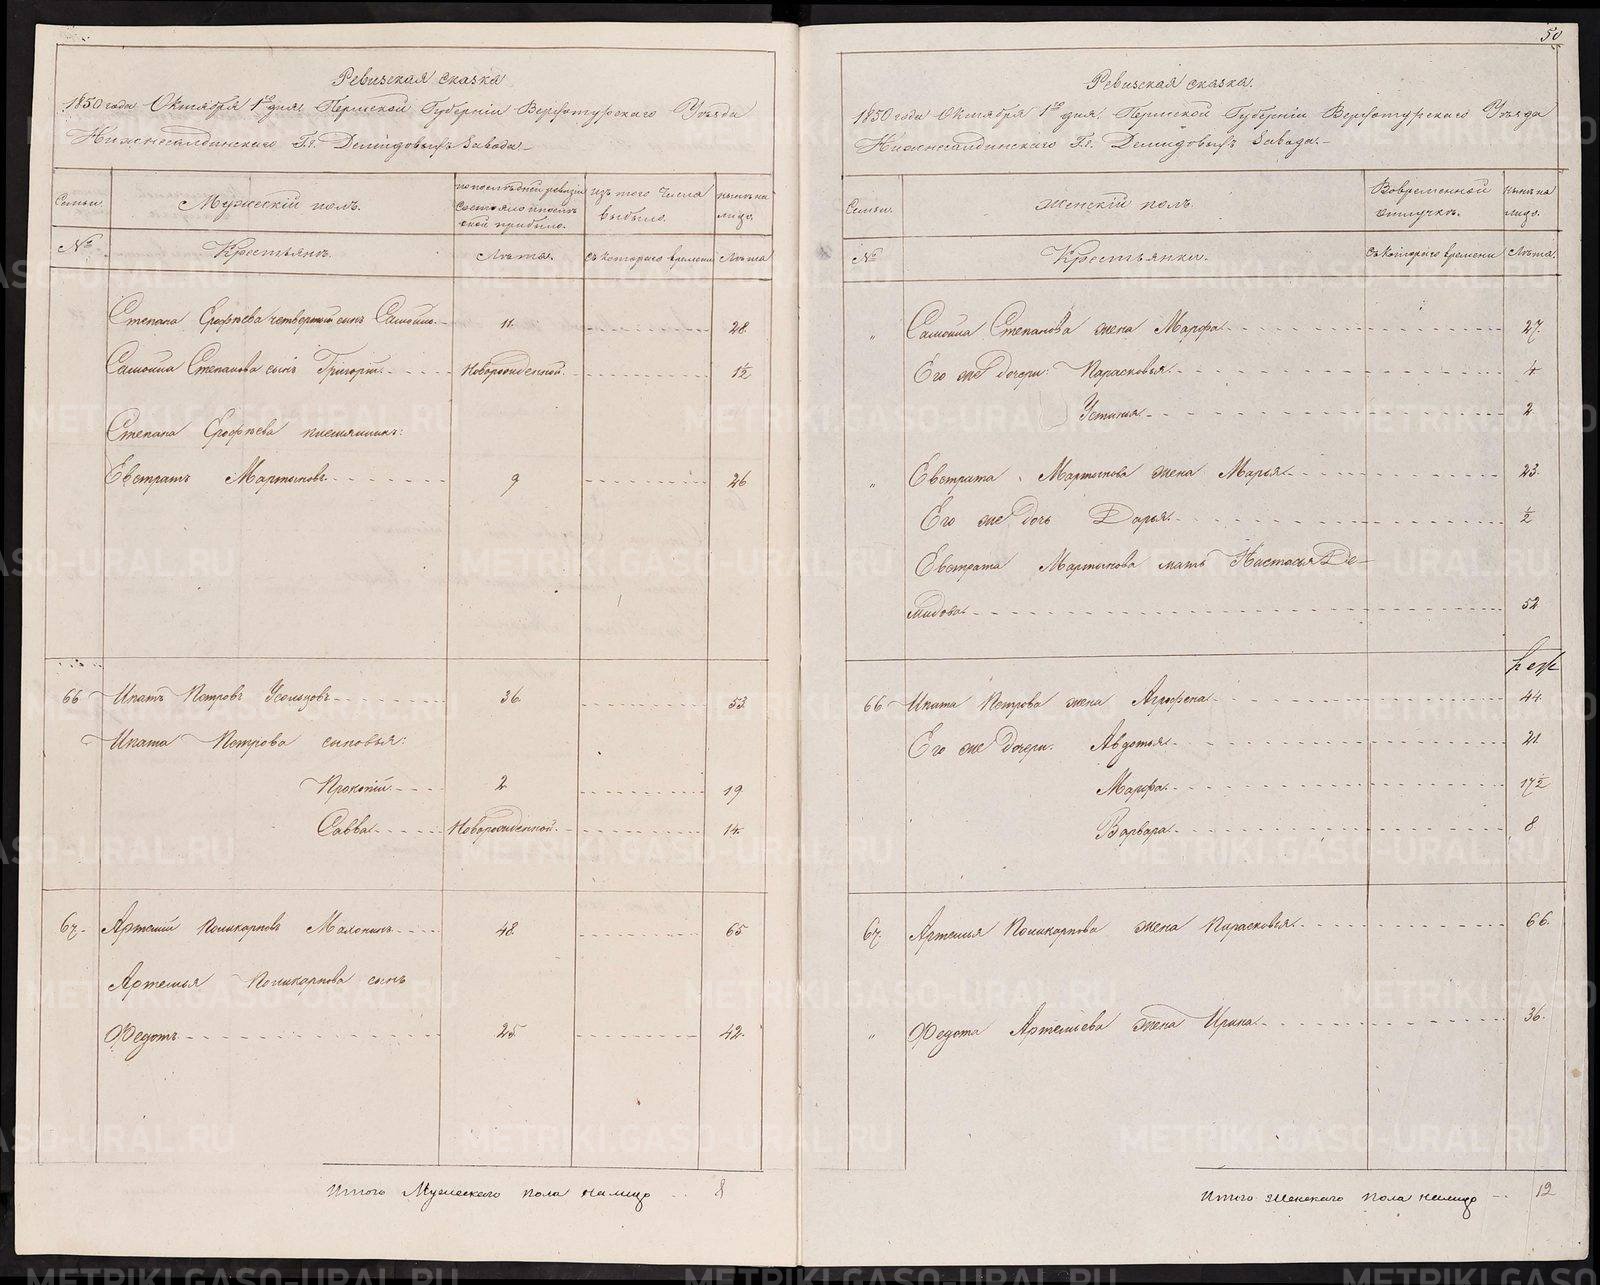 Ревизская сказка
1850 года Октября 1го дня. Пермской Губерніи Верхотурскаго Уѣзда
Нижнесалдинскаго Г.г. Демидовыхъ Завода.
Семьи. Мужескій полъ. по послѣдней ревизіи состояло и послѣ оной прибыло. изъ того числа выбыло. нынѣ на лицо.
№ Крестьянъ. Лѣта. съ котораго времени Лѣта
Степана Ерофѣева четвертый сынъ Самойло. 11. 28.
Самойла Степанова сынъ Григорій. Новорожденной. 1½
Степана Ерофѣева племянникъ:
Евстратъ Мартыновъ. 9 26
66 Ипатъ Петровъ Усольцовъ 36. 53.
Ипата Петрова сыновья:
Прокопій. 2 19
Савва. Новорожденной. 14.
67. Артемій Поликарповъ Малонинъ 48. 65
Артемья Поликарпова сынъ
Федотъ 25. 42.
Итого Мужескаго пола налицо 8
50
Ревизская сказка.
1850 года Октября 1го дня. Пермской Губерніи Верхотурскаго Уѣзда
Нижнесалдинскаго Г.г. Демидовыхъ Завода.
Семьи. Женскій полъ. Во временной отлучкѣ. нынѣ на лицо.
№ Крестьянки. съ котораго времени Лѣта.
" Самойла Степанова жена Марфа. 27.
Его же дочери: Парасковья. 4.
Устинья. 2.
" Евстрата Мартынова жена Марья. 23.
Его же дочь Дарья. ½
Евстрата Мартынова мать Настасья Де-
мидова. 52
66. Ипата Петрова жена Агрофена. 44.
Его же дочери: Авдотья. 21.
Марфа. 17½
Варвара. 8
67. Артемія Поликарпова жена Парасковья. 66.
" Федота Артеміева жена Ирина. 36.
Итого Женскаго пола налицо 12
METRIKI.GASO-URAL.RU